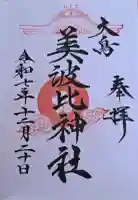 奉拝
大鳥
美波比神社
令和七年十二月二十日